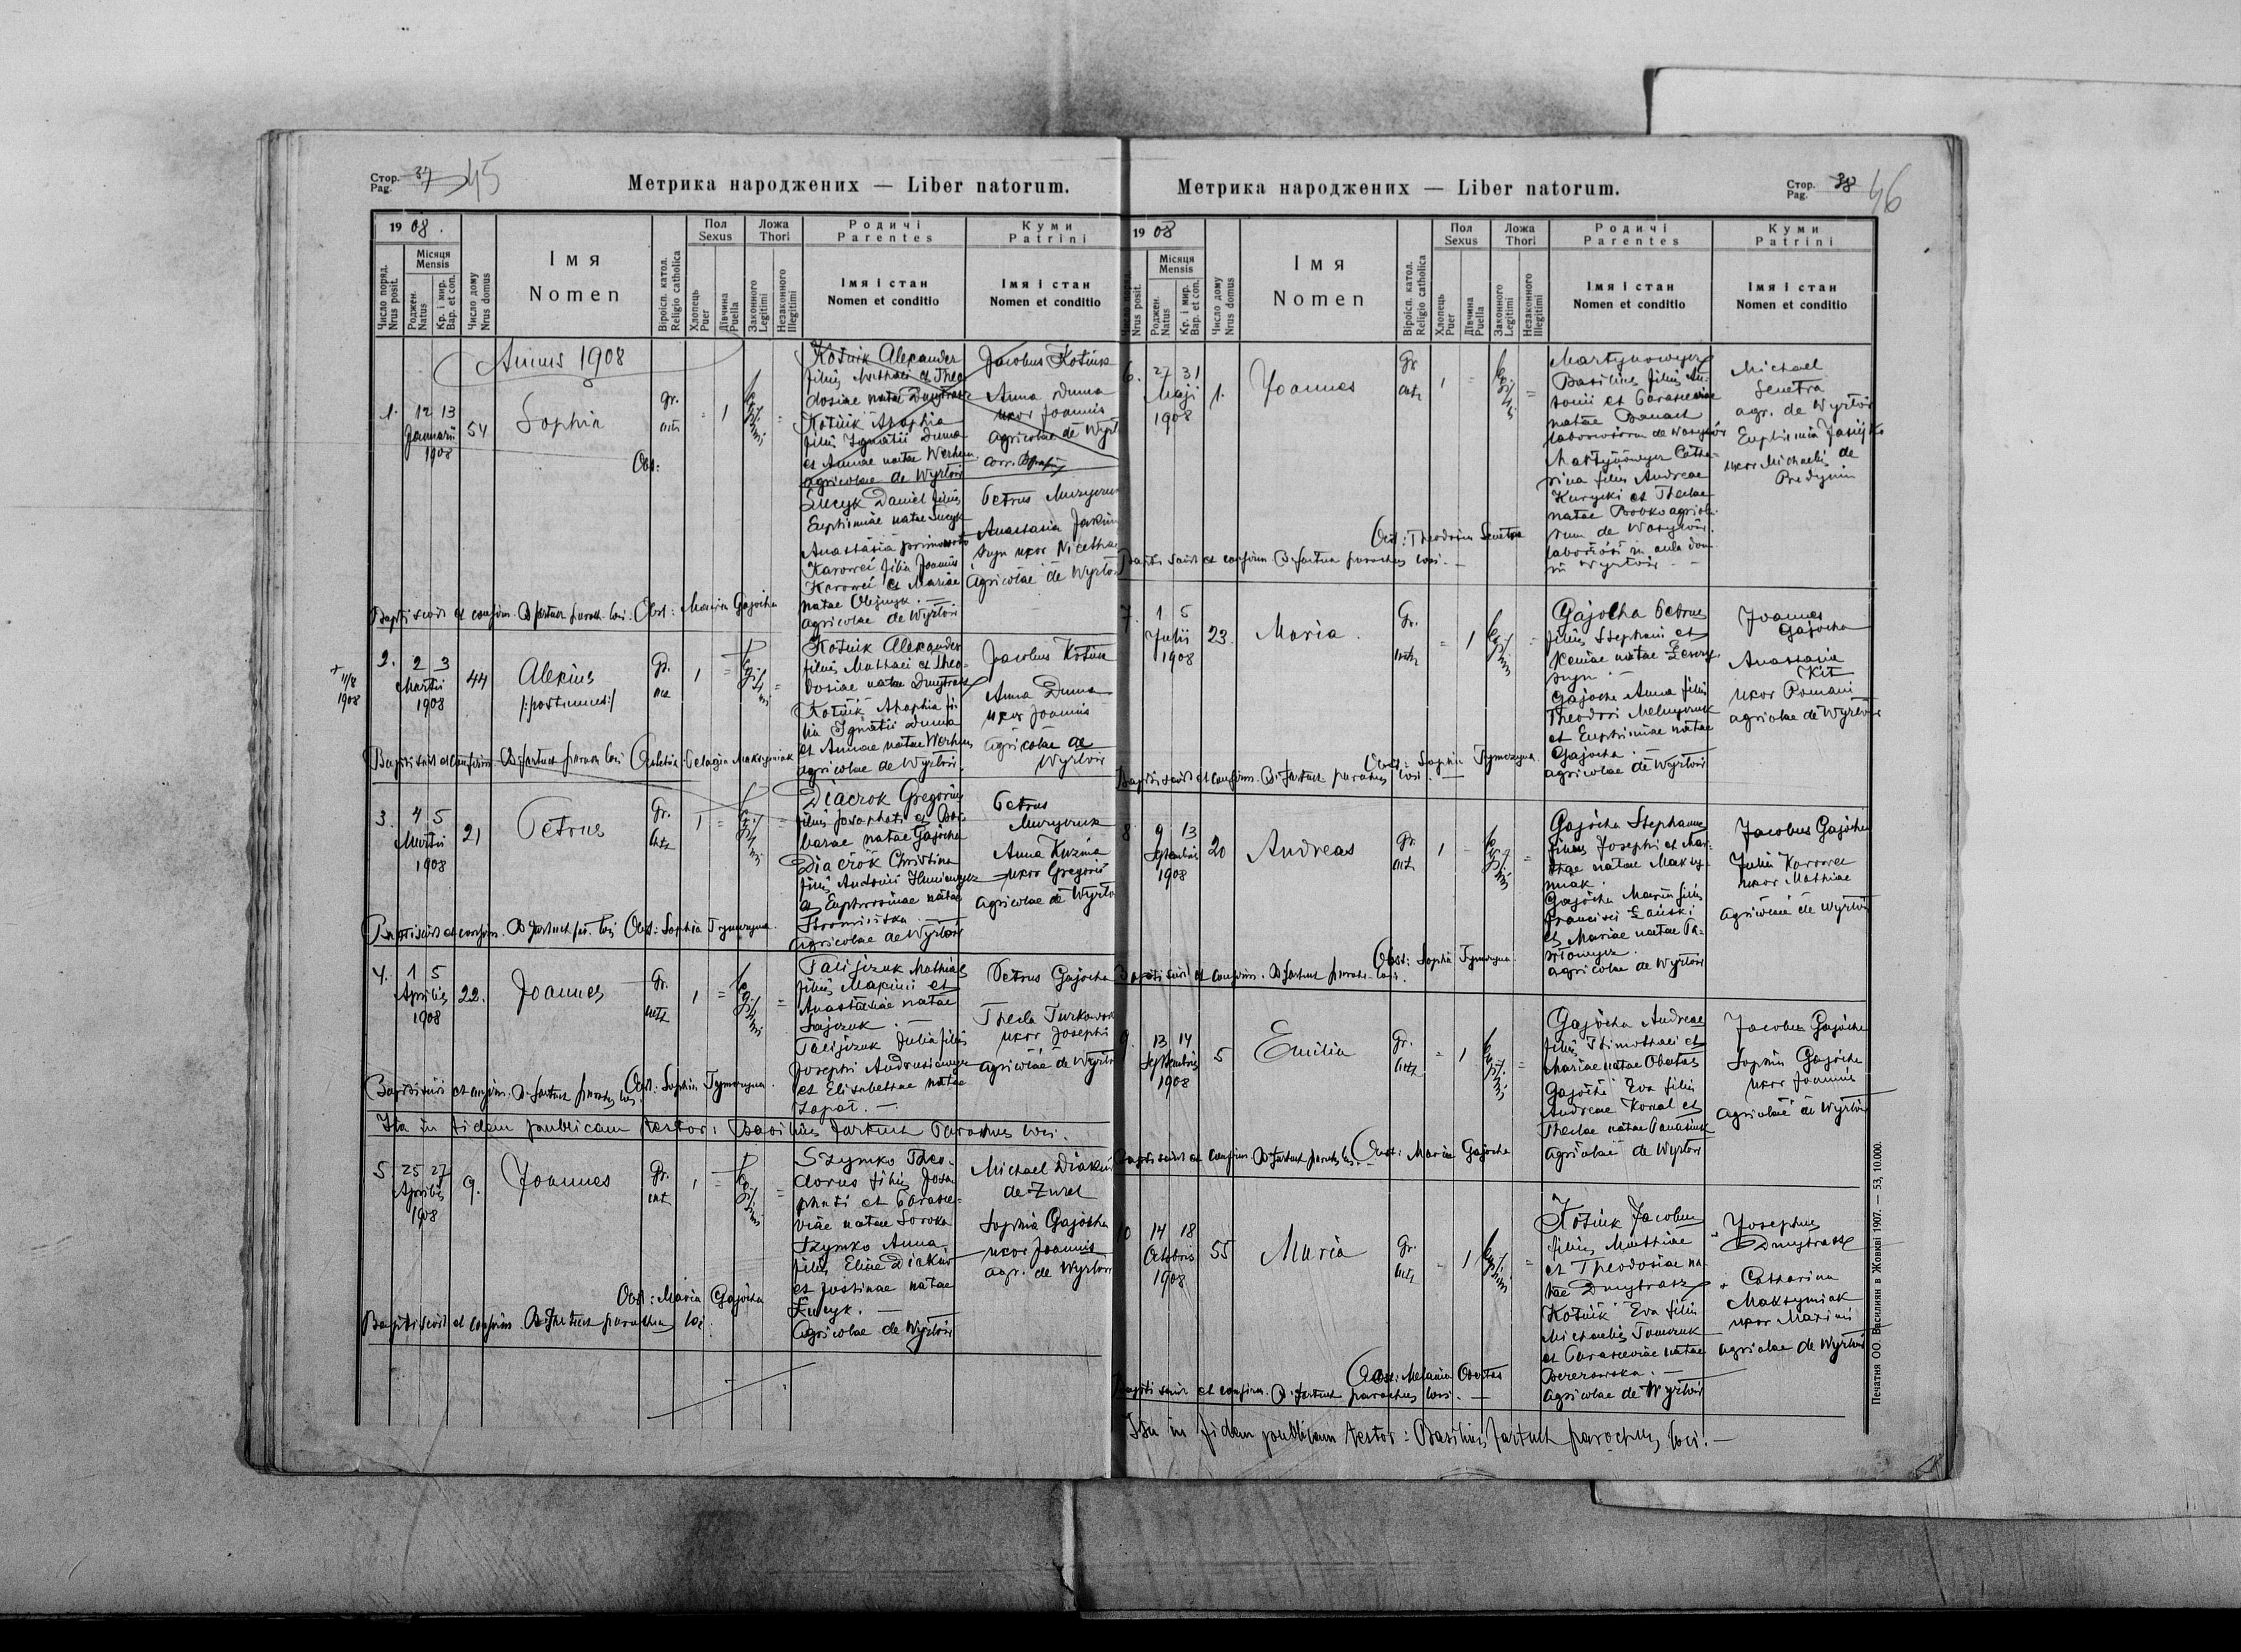 Стор. 37 45
Pag.
Метрика народжених — Liber natorum.
19 08.
Число поряд.
Nrus posit.
Місяця
Mensis
Роджен.
Natus
Кр. і мир.
Bap. et con.
Число дому
Nrus domus
Імя
Nomen
Віроісп. катол.
Religio catholica
Пол
Sexus
Хлопець
Puer
Дівчина
Puella
Ложа
Thori
Законного
Legitimi
Незаконного
Illegitimi
Родичі
Parentes
Імя і стан
Nomen et conditio
Куми
Patrini
Імя і стан
Nomen et conditio
Annus 1908
1. 12 13
Januarii
1908
54
Sophia
Gr.
1
Kotiuk Alexander
filius Matthaei et Theo
dosiae natae Dmytrasz
Kotiuk Apophia
filia Ignatii Duma
et Annae natae Werhun
agricolae de Wyrlów
Jacobus Kotiuk
Anna Duma
uxor Joannis
agricolae de Wyrl
Obst:
Lucyk Daniel filius
Euphimiae natae Lucyk
Anastasia
Karowei filia Joannis
Karowei et Mariae
natae Olejnyk. —
agricolae de Wyrlów
Petrus Muzyczuk
Anastasia
uxor Nicetha
Agricolae de Wyrlów
Baptisavit et confirm. B. Jartuch paroch. loci. Obst: Maria Gajocha
+ 11/8
1908
2. 2 3
Martii
1908
44
Alexius
/:postumus:/
Gr.
1 =
Kotiuk Alexander
filius Matthaei et Theo-
dosiae natae Dmytrasz
Kotiuk Apophia fi-
lia Ignatii Duma
et Annae natae Werhun
agricolae de Wyrlów.
Jacobus Kotiuk
Anna Duma
uxor Joannis
agricolae de
Wyrlów
Baptisavit et confirm. B. Jartuch paroch loci Obstetrix: Pelagia Maksymiak
3. 4 5
Martii
1908
21
Petrus
Gr.
1 =
Diaczok Gregorius
filius Josaphati et Bar-
barae natae Gajocha
Diaczok Christina
filia Andreii
et Euphrosinae natae
agricolae de Wyrlów
Petrus
Muzyczuk
Anna Kuzma
uxor Gregorii
agricolae de Wyrlów
Baptisavit et confirm. B. Jartuch par. loci Obst: Sophia Tymczyna.
4. 1 5
Aprilis
1908
22.
Joannes
Gr.
1 =
Palijczuk Mathias
filius Maximi et
Anastasiae natae
Sajczuk. —
Palijczuk Julia filia
Josephi Andrusiewycz
et Elisabethae natae
Lapat. —
Petrus Gajocha
Thecla Turkowska
uxor Josephi
agricolae de Wyrlów
Baptisavit et confirm. B. Jartuch parochus loci. Obst: Sophia Tymczyna.
Ita in fidem publicam testor: Basilius Jartuch Parochus loci.
5 25 27
Aprilis
1908
9.
Joannes
Gr.
1 =
Szymko Theo-
dorus filius Josa-
phati et Parasce-
viae natae Soroka
Szymko Anna
filia Eliae Diakiw
et Justinae natae
Lucyk. —
Agricolae de Wyrlów
Michael Diakiw
de Zurel
Sophia Gajocha
uxor Joannis
agr. de Wyrlów
Obst: Maria Gajocha
Baptisavit et confirm. B. Jartuch parochus loci.
Метрика народжених — Liber natorum.
Стор. 38 46
Pag.
19 08
Число поряд.
Nrus posit.
Місяця
Mensis
Роджен.
Natus
Кр. і мир.
Bap. et con.
Число дому
Nrus domus
Імя
Nomen
Віроісп. катол.
Religio catholica
Пол
Sexus
Хлопець
Puer
Дівчина
Puella
Ложа
Thori
Законного
Legitimi
Незаконного
Illegitimi
Родичі
Parentes
Імя і стан
Nomen et conditio
Куми
Patrini
Імя і стан
Nomen et conditio
6. 27 31
Maji
1908
1.
Joannes
Gr
1 =
Martynowycz
Basilius filius An-
tonii et Parasceviae
natae Banach
Martynowycz Catha-
rina filia Andreae
Kurycki et Theclae
natae Bobko agricola-
rum de Wasylów.
in aula dom
in Wyrlów. —
Michael
Senetra
agr. de Wyrlów
Euphimia
uxor Michaelis de
Obst: Theodosia Senetra
Baptisavit et confirm B. Jartuch parochus loci. —
7. 1 5
Julii
1908
23.
Maria.
Gr.
= 1
Gajocha Petrus
filius Stephani et
Xeniae natae
Gajocha Anna filia
Theodori Melnyczuk
et Euphimiae natae
Gajocha. —
agricolae de Wyrlów
Joannes
Gajocha
Anastasia
Kit
uxor Romani
agricolae de Wyrlów
Obst: Sophia Tymczyna.
Baptisavit et confirm. B. Jartuch parochus loci. —
8 9 13
Septembris
1908
20
Andreas
Gr.
1 =
Gajocha Stephanus
filius Josephi et Mar-
thae natae Maksy-
miak.
Gajocha Maria filia
Francisci Łański
et Mariae natae Pa-
agricolae de Wyrlów
Jacobus Gajocha
Julia Karowec
uxor Mathiae
agricolae de Wyrlów
Obst: Sophia Tymczyna.
Baptisavit et confirm. B. Jartuch paroch. loci.
9. 13 14
Septembris
1908
5
Emilia
Gr.
= 1
Gajocha Andreas
filius Timothaei et
Mariae natae Obertas
Gajocha Eva filia
Andreae Kowal et
Theclae natae Panasiuk
agricolae de Wyrlów
Jacobus Gajocha
Sophia Gajocha
uxor Joannis
agricolae de Wyrlów
Baptisavit et confirm. B. Jartuch paroch. loci. Obst: Maria Gajocha
10 14 18
Octobris
1908
55
Maria
Gr.
= 1
Kotiuk Jacobus
filius Matthiae
et Theodosiae na-
tae Dmytrasz
Kotiuk Eva filia
Michaelis Tomczuk
et Parasceviae natae
Berezowska. —
agricolae de Wyrlów
Josephus
Dmytrasz
Catharina
Maksymiak
uxor Maximi
agricolae de Wyrlów
Obst: Melania Obertas
Baptisavit et confirm. B. Jartuch parochus loci. —
Ita in fidem publicam testor: Basilius Jartuch parochus loci. —
Печатня ОО. Василиян в Жовкві 1907. — 53, 10.000.